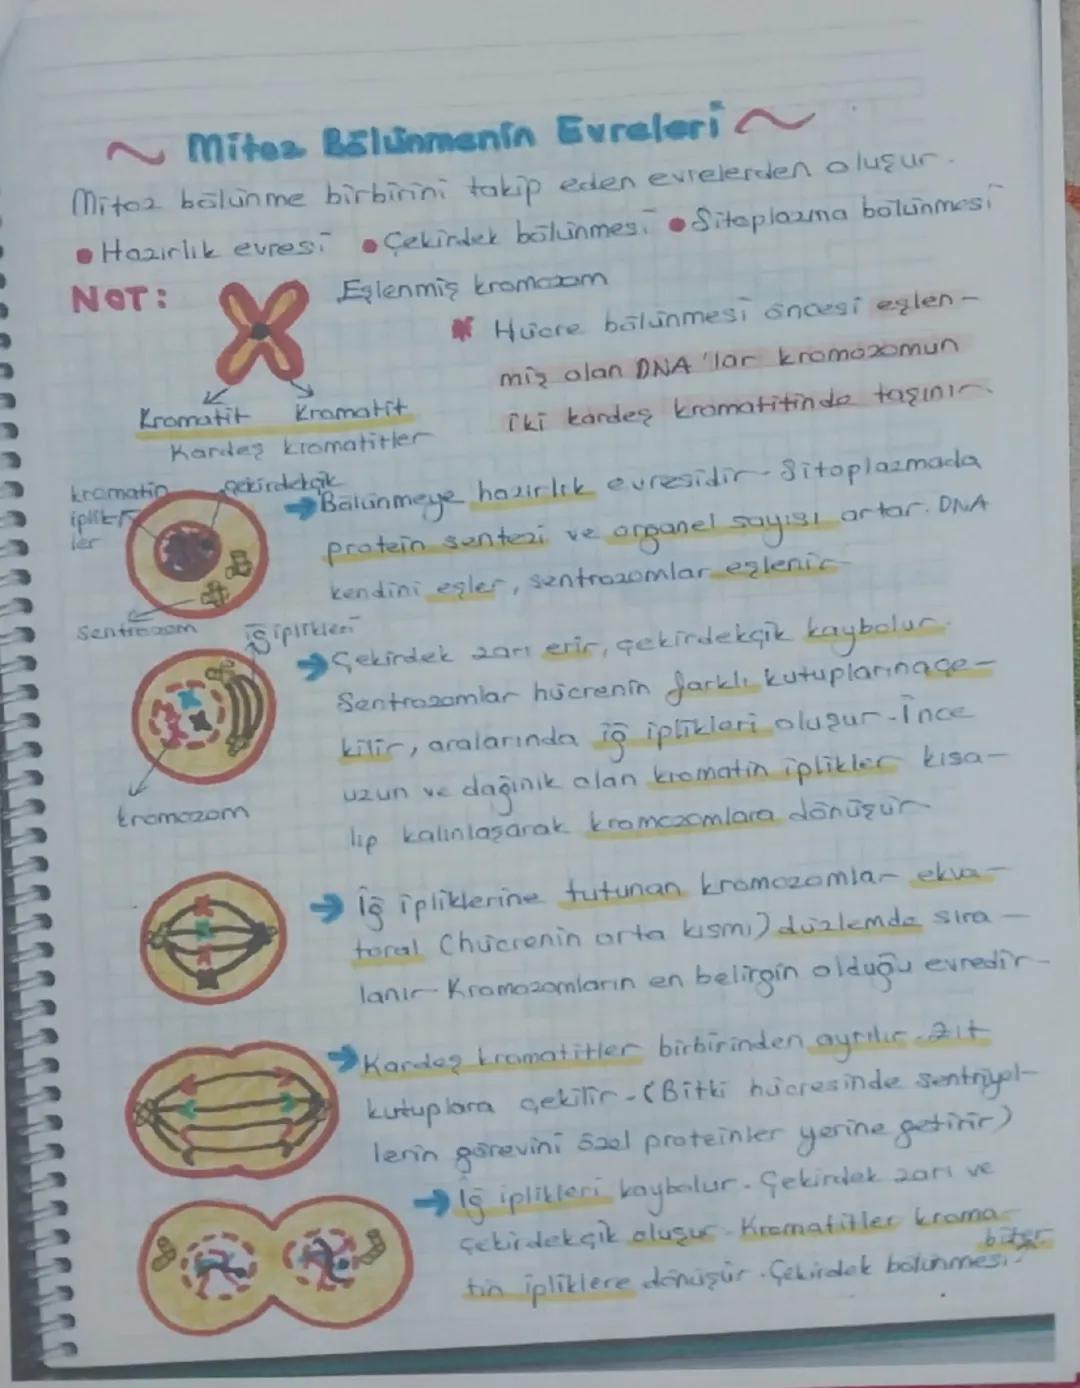 ~ Mitoz Bölünmenin Evreleri ~
Mitoz bölünme birbirini takip eden evrelerden oluşur.
• Hazırlık evresi • Çekirdek bölünmesi • Sitoplazma bölünmesi
NOT: Eşlenmiş kromozom
* Hücre bölünmesi öncesi eşlen-
miş olan DNA'lar kromozomun
iki kardeş kromatitinde taşınır.
Kromatit Kromatit
Kardeş kromatitler
kromatin
iplik-
ler
çekirdekçik
Sentrozom
→ Bölünmeye hazırlık evresidir. Sitoplazmada
protein sentezi ve organel sayısı artar. DNA
kendini eşler, sentrozomlar eşlenir.
iğ iplikleri
kromozom
→ Çekirdek zarı erir, çekirdekçik kaybolur.
Sentrozomlar hücrenin farklı kutuplarına çe-
kilir, aralarında iğ iplikleri oluşur. İnce
uzun ve dağınık olan kromatin iplikler kısa-
lıp kalınlaşarak kromozomlara dönüşür.
→ İğ ipliklerine tutunan kromozomlar ekva-
toral (hücrenin orta kısmı) düzlemde sıra-
lanır. Kromozomların en belirgin olduğu evredir.
→ Kardeş kromatitler birbirinden ayrılır. Zıt
kutuplara çekilir. (Bitki hücresinde sentriyol-
lerin görevini özel proteinler yerine getirir)
→ İğ iplikleri kaybolur. Çekirdek zarı ve
çekirdekçik oluşur. Kromatitler kroma-
tin ipliklere dönüşür. Çekirdek bölünmesi biter.